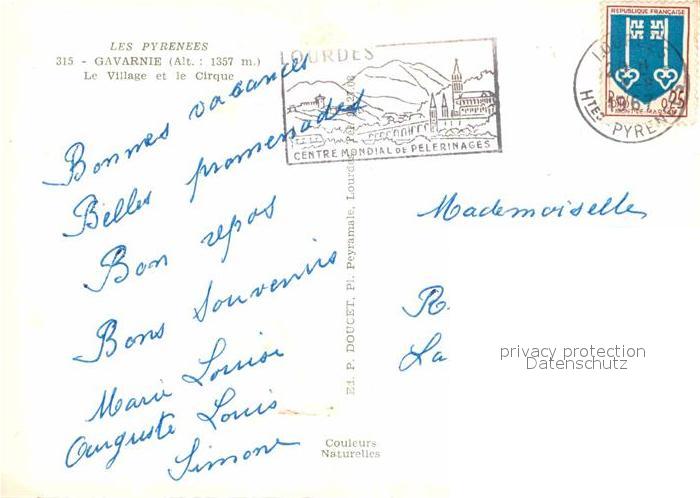 LES PYRENEES
315 - GAVARNIE (Alt. : 1357 m.)
Le Village et le Cirque
Bonnes vacances
Belles promenades
Bon repos
Bons souvenirs
Marie Louise
Auguste Louis
Simone
Ed. P. DOUCET, Pl. Peyramale, Lourdes
Couleurs
Naturelles
LOURDES
CENTRE MONDIAL DE PÉLERINAGES
REPUBLIQUE FRANÇAISE
0,25
MONT-DE-MARSAN
1967
HTES-PYRENEES
Mademoiselle
R.
La
privacy protection
Datenschutz